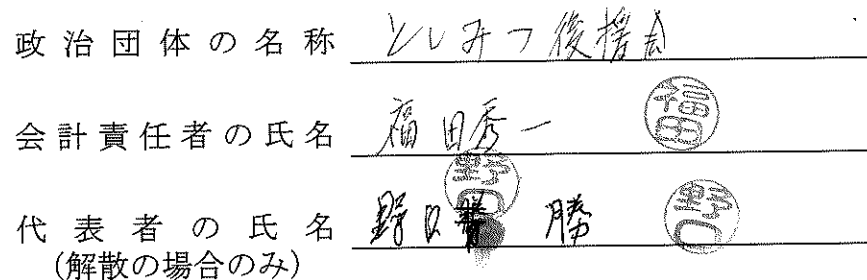 政治団体の名称 としみつ後援会
会計責任者の氏名 福田秀一 福田
代表者の氏名 野口 勝 野口
(解散の場合のみ)
野口